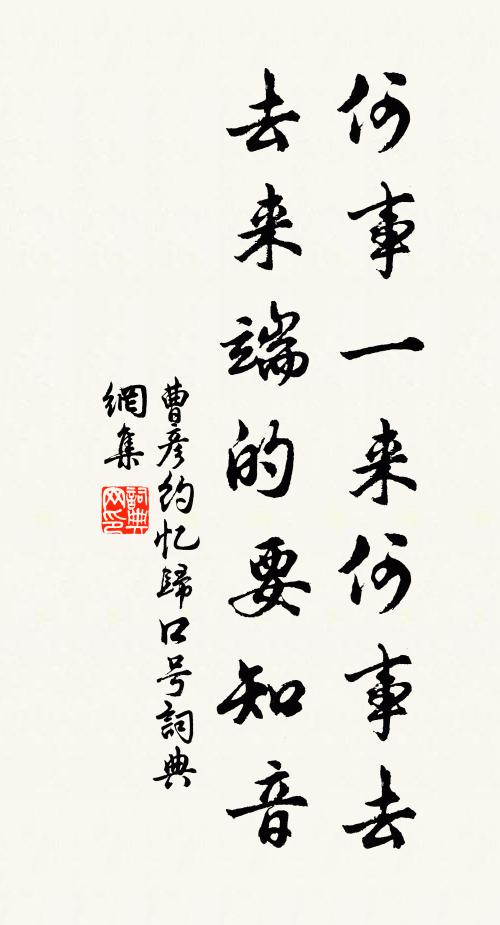 何事一来何事去
去来端的要知音
曹彦约忆歸口号詞典
網集
詞典网印